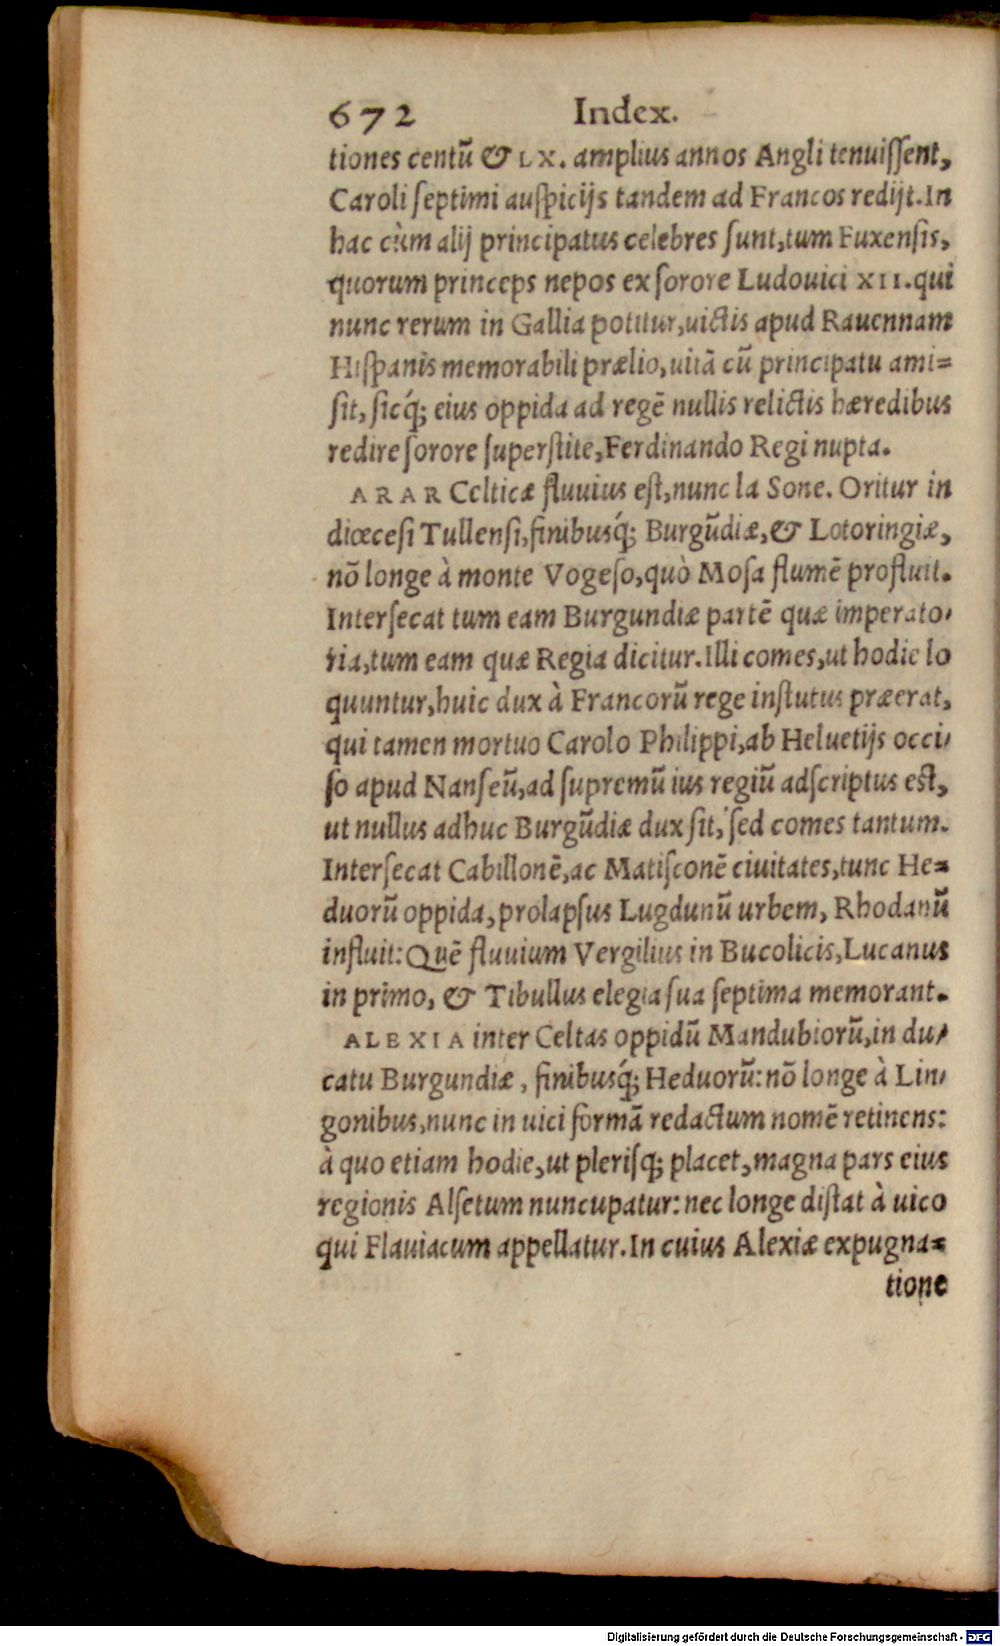 672 Index.
tiones centũ & LX. amplius annos Angli tenuiſſent,
Caroli ſeptimi auſpicijs tandem ad Francos redijt. In
hac cùm alij principatus celebres ſunt, tum Fuxenſis,
quorum princeps nepos ex ſorore Ludouici XII. qui
nunc rerum in Gallia potitur, uictis apud Rauennam
Hiſpanis memorabili prælio, uitã cũ principatu ami=
ſit, ſicq́; eius oppida ad regẽ nullis relictis hæredibus
redire ſorore ſuperſtite, Ferdinando Regi nupta.
ARAR Celticæ fluuius eſt, nunc la Sone. Oritur in
diœceſi Tullenſi, finibusq́; Burgũdiæ, & Lotoringiæ,
nõ longe à monte Vogeſo, quò Moſa flumẽ profluit.
Interſecat tum eam Burgundiæ partẽ quæ imperato-
ria, tum eam quæ Regia dicitur. Illi comes, ut hodie lo
quuntur, huic dux à Francorũ rege inſtutus præerat,
qui tamen mortuo Carolo Philippi, ab Heluetijs occi-
ſo apud Nanſeũ, ad ſupremũ ius regiũ adſcriptus eſt,
ut nullus adhuc Burgũdiæ dux ſit, ſed comes tantum.
Interſecat Cabillonẽ, ac Matiſconẽ ciuitates, tunc He=
duorũ oppida, prolapſus Lugdunũ urbem, Rhodanũ
influit: Quẽ fluuium Vergilius in Bucolicis, Lucanus
in primo, & Tibullus elegia ſua ſeptima memorant.
ALEXIA inter Celtas oppidũ Mandubiorũ, in du-
catu Burgundiæ, finibusq́; Heduorũ: nõ longe à Lin-
gonibus, nunc in uici formã redactum nomẽ retinens:
à quo etiam hodie, ut pleriſq; placet, magna pars eius
regionis Alſetum nuncupatur: nec longe diſtat à uico
qui Flauiacum appellatur. In cuius Alexiæ expugna=
tione
Digitalisierung gefördert durch die Deutsche Forschungsgemeinschaft - DFG